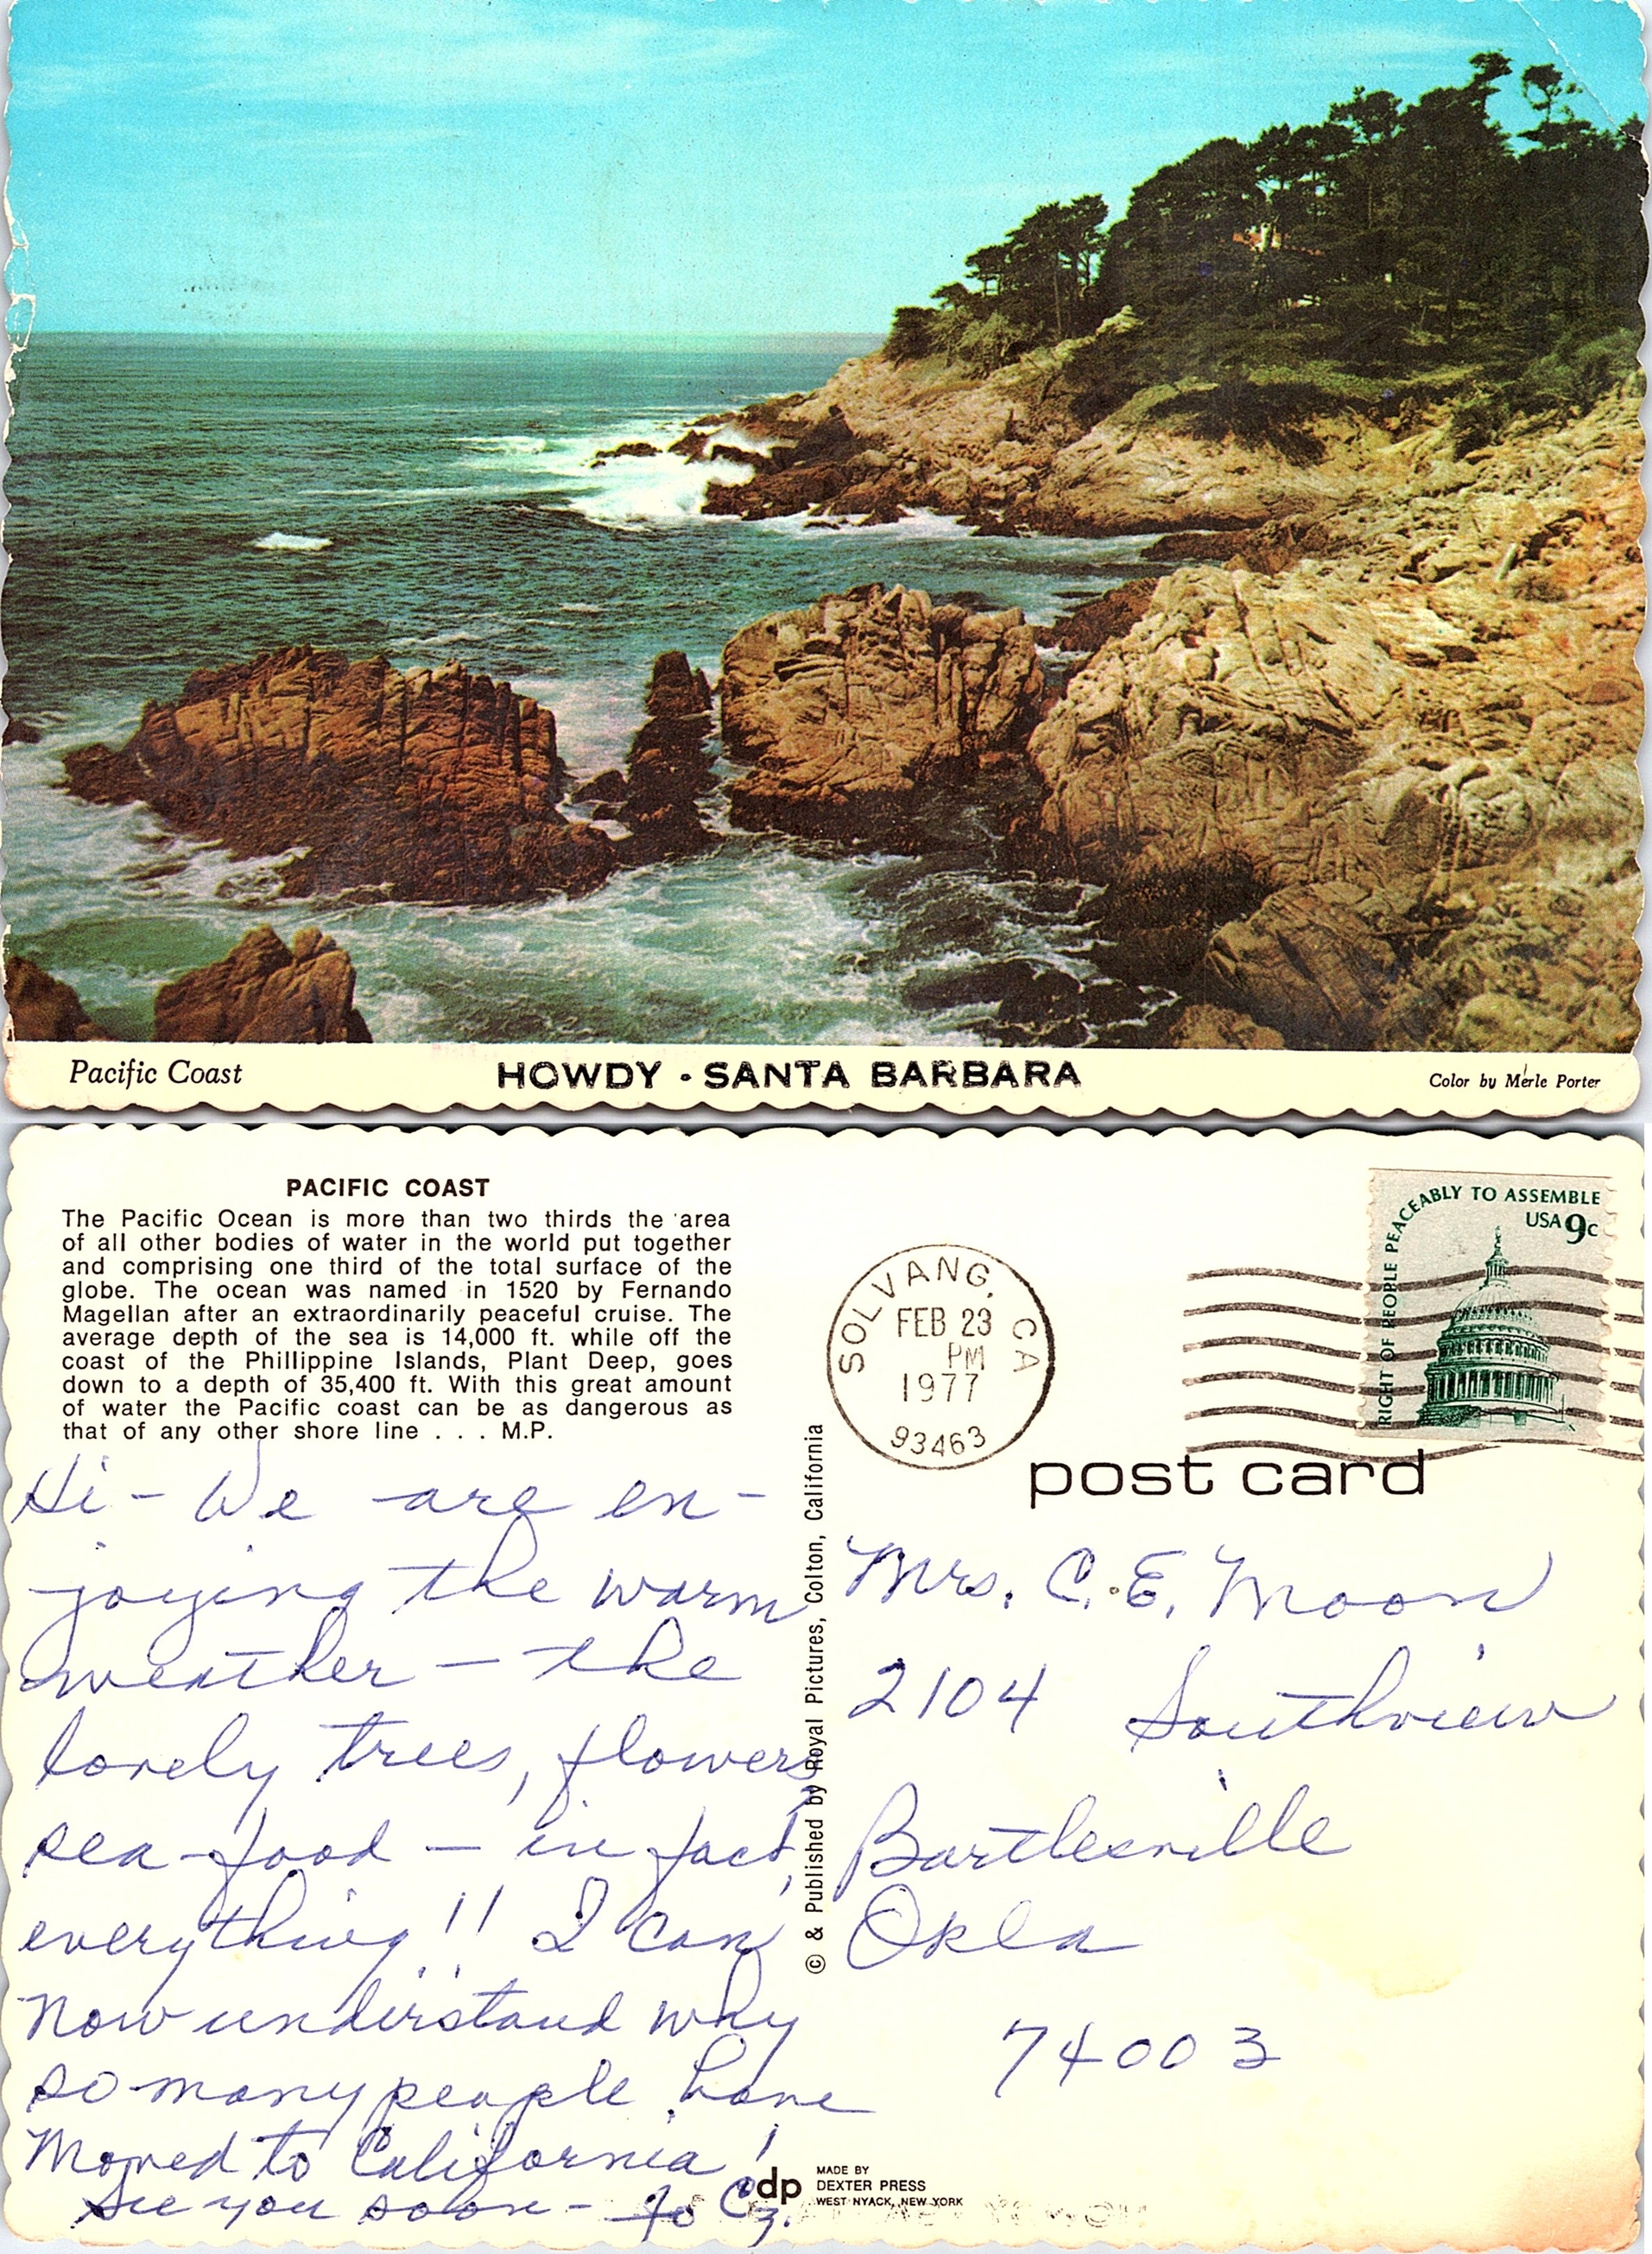 Pacific Coast
HOWDY - SANTA BARBARA
Color by Merle Porter
PACIFIC COAST
The Pacific Ocean is more than two thirds the area
of all other bodies of water in the world put together
and comprising one third of the total surface of the
globe. The ocean was named in 1520 by Fernando
Magellan after an extraordinarily peaceful cruise. The
average depth of the sea is 14,000 ft. while off the
coast of the Phillippine Islands, Plant Deep, goes
down to a depth of 35,400 ft. With this great amount
of water the Pacific coast can be as dangerous as
that of any other shore line . . . M.P.
Hi - We are en-
joying the warm
weather - the
lovely trees, flowers,
sea-food - in fact,
everything!! I can
now understand why
so many people have
moved to California!
See you soon -
© & Published by Royal Pictures, Colton, California
SOLVANG, CA
FEB 23
PM
1977
93463
RIGHT OF PEOPLE PEACEABLY TO ASSEMBLE
USA 9c
post card
Mrs. C. E. Moon
2104 Southview
Bartlesville
Okla
74003
dp
MADE BY
DEXTER PRESS
WEST NYACK, NEW YORK